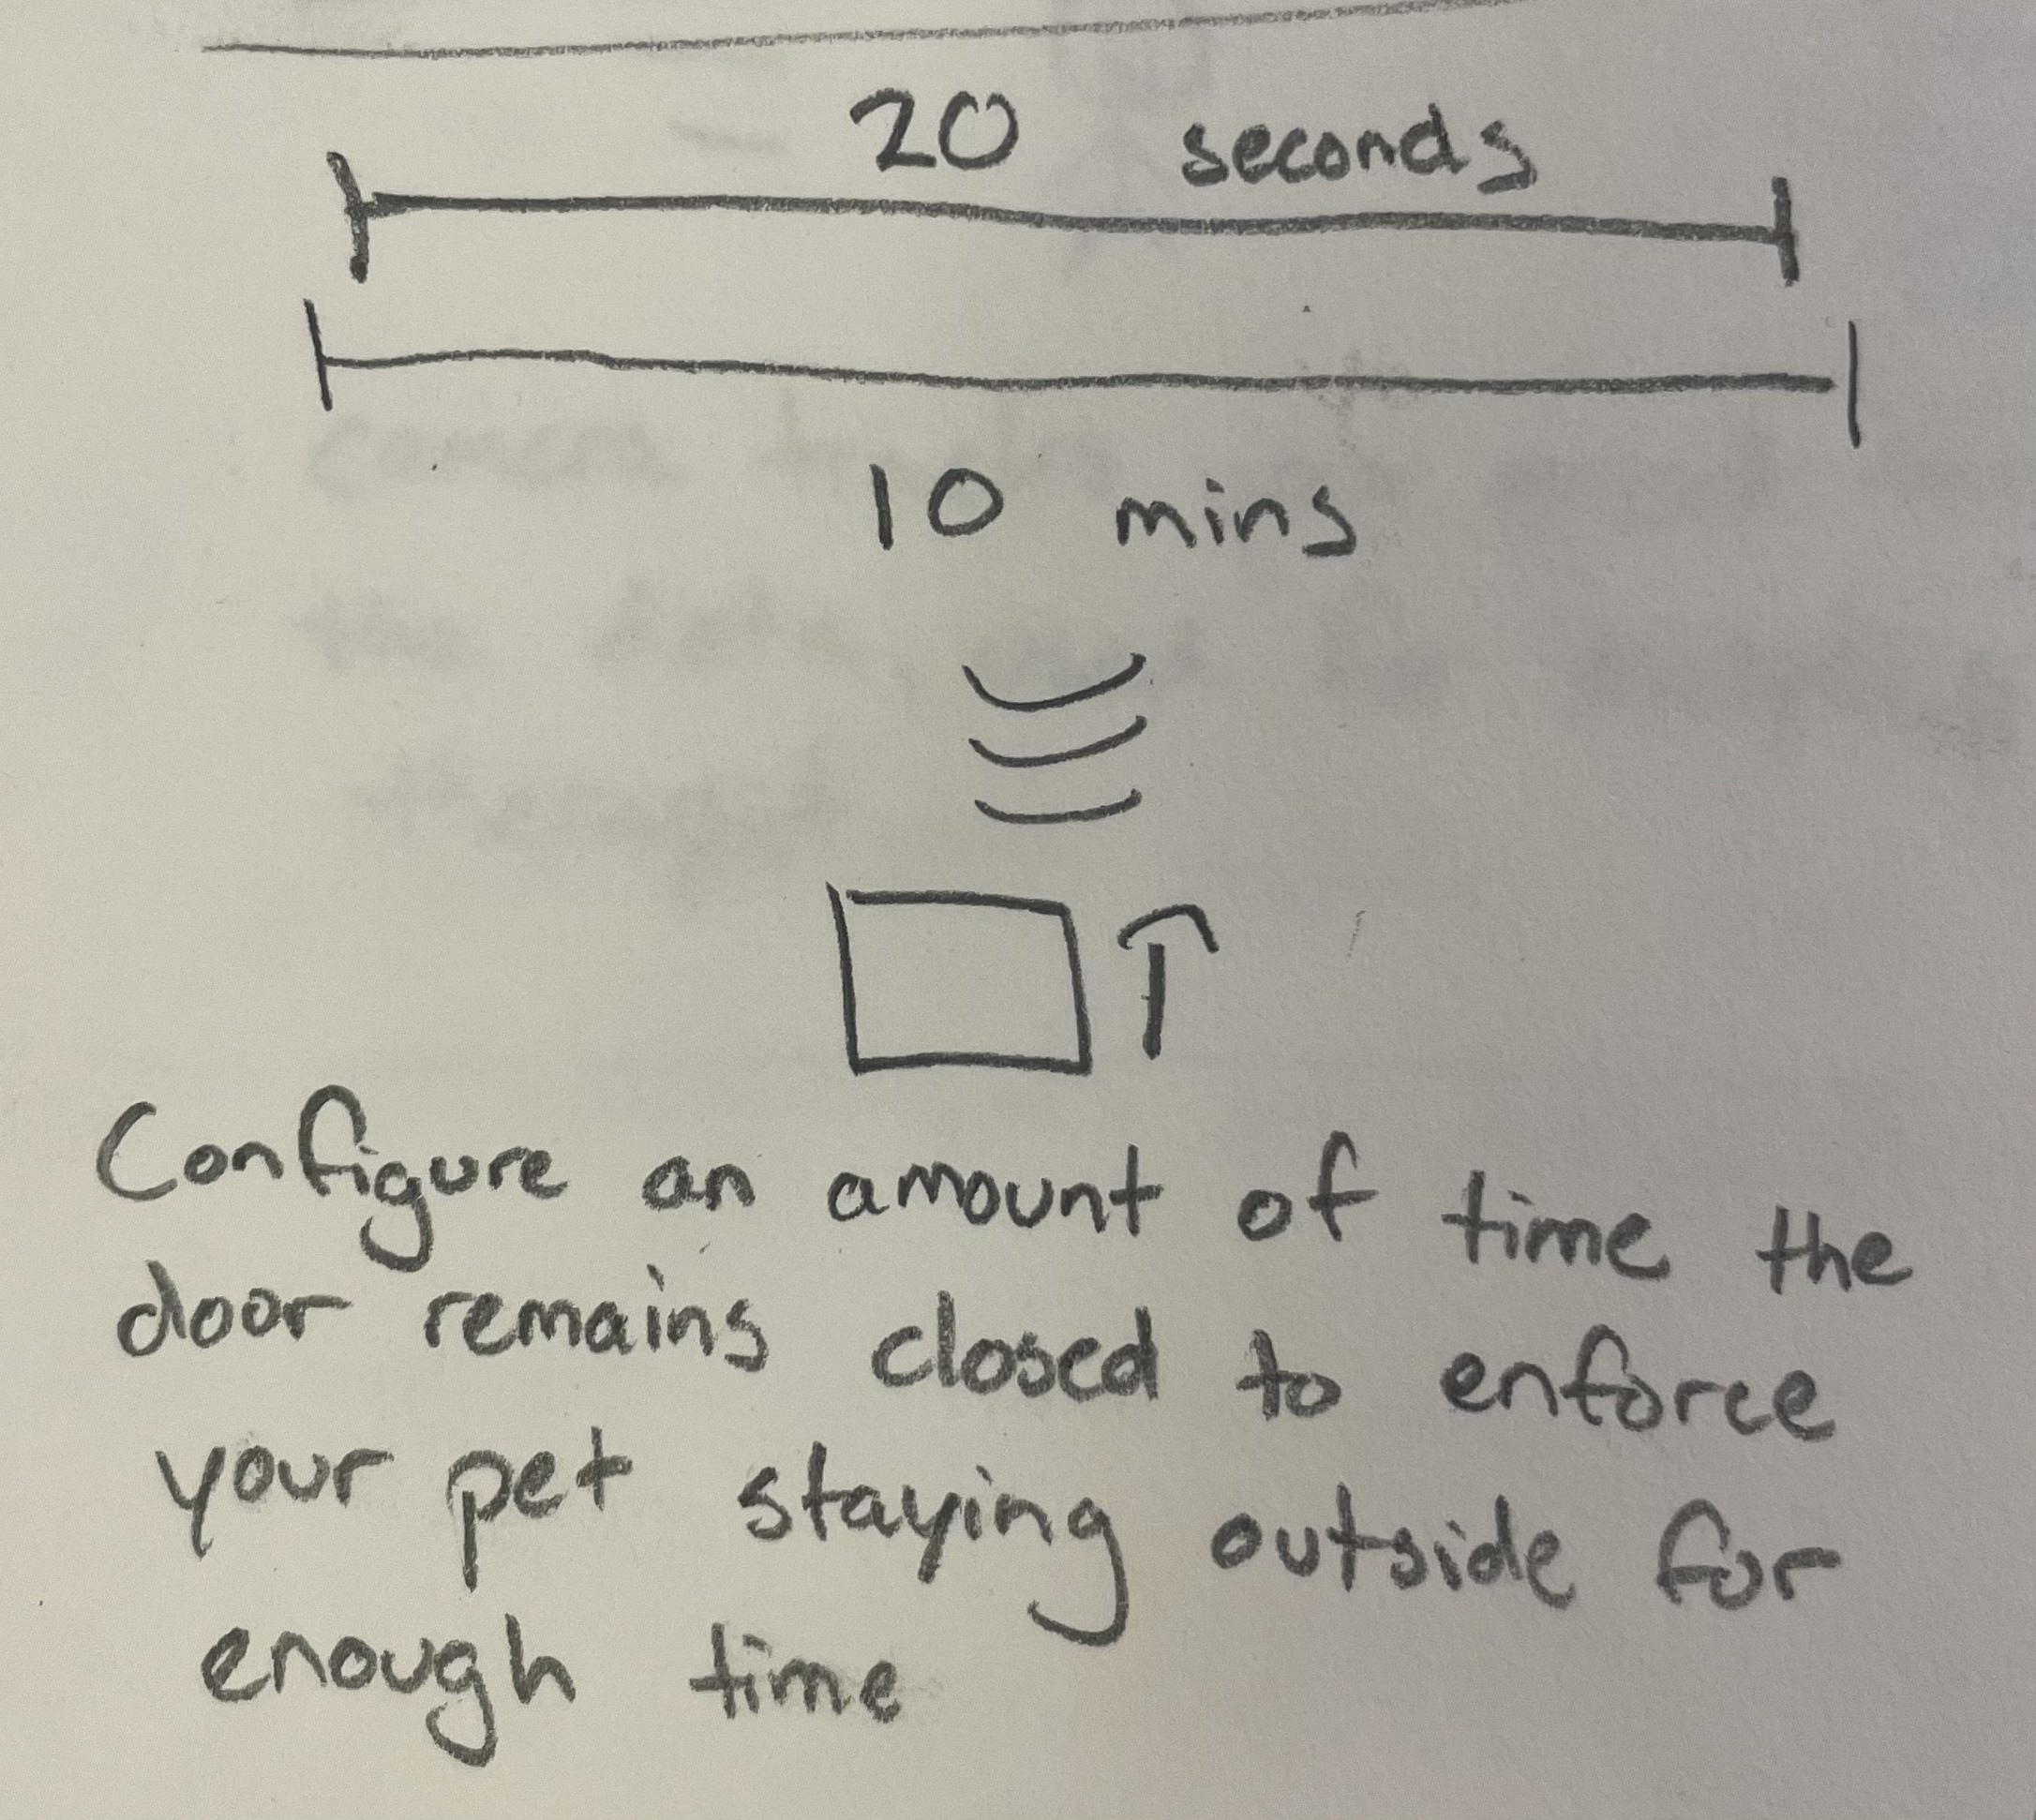 20 seconds
10 mins
Configure an amount of time the
door remains closed to enforce
your pet staying outside for
enough time